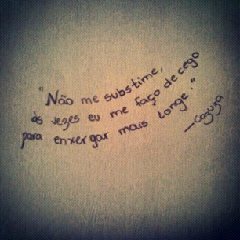 "Não me substime,
ás vezes eu me faço de cego
para enxergar mais longe."
—Cazuza